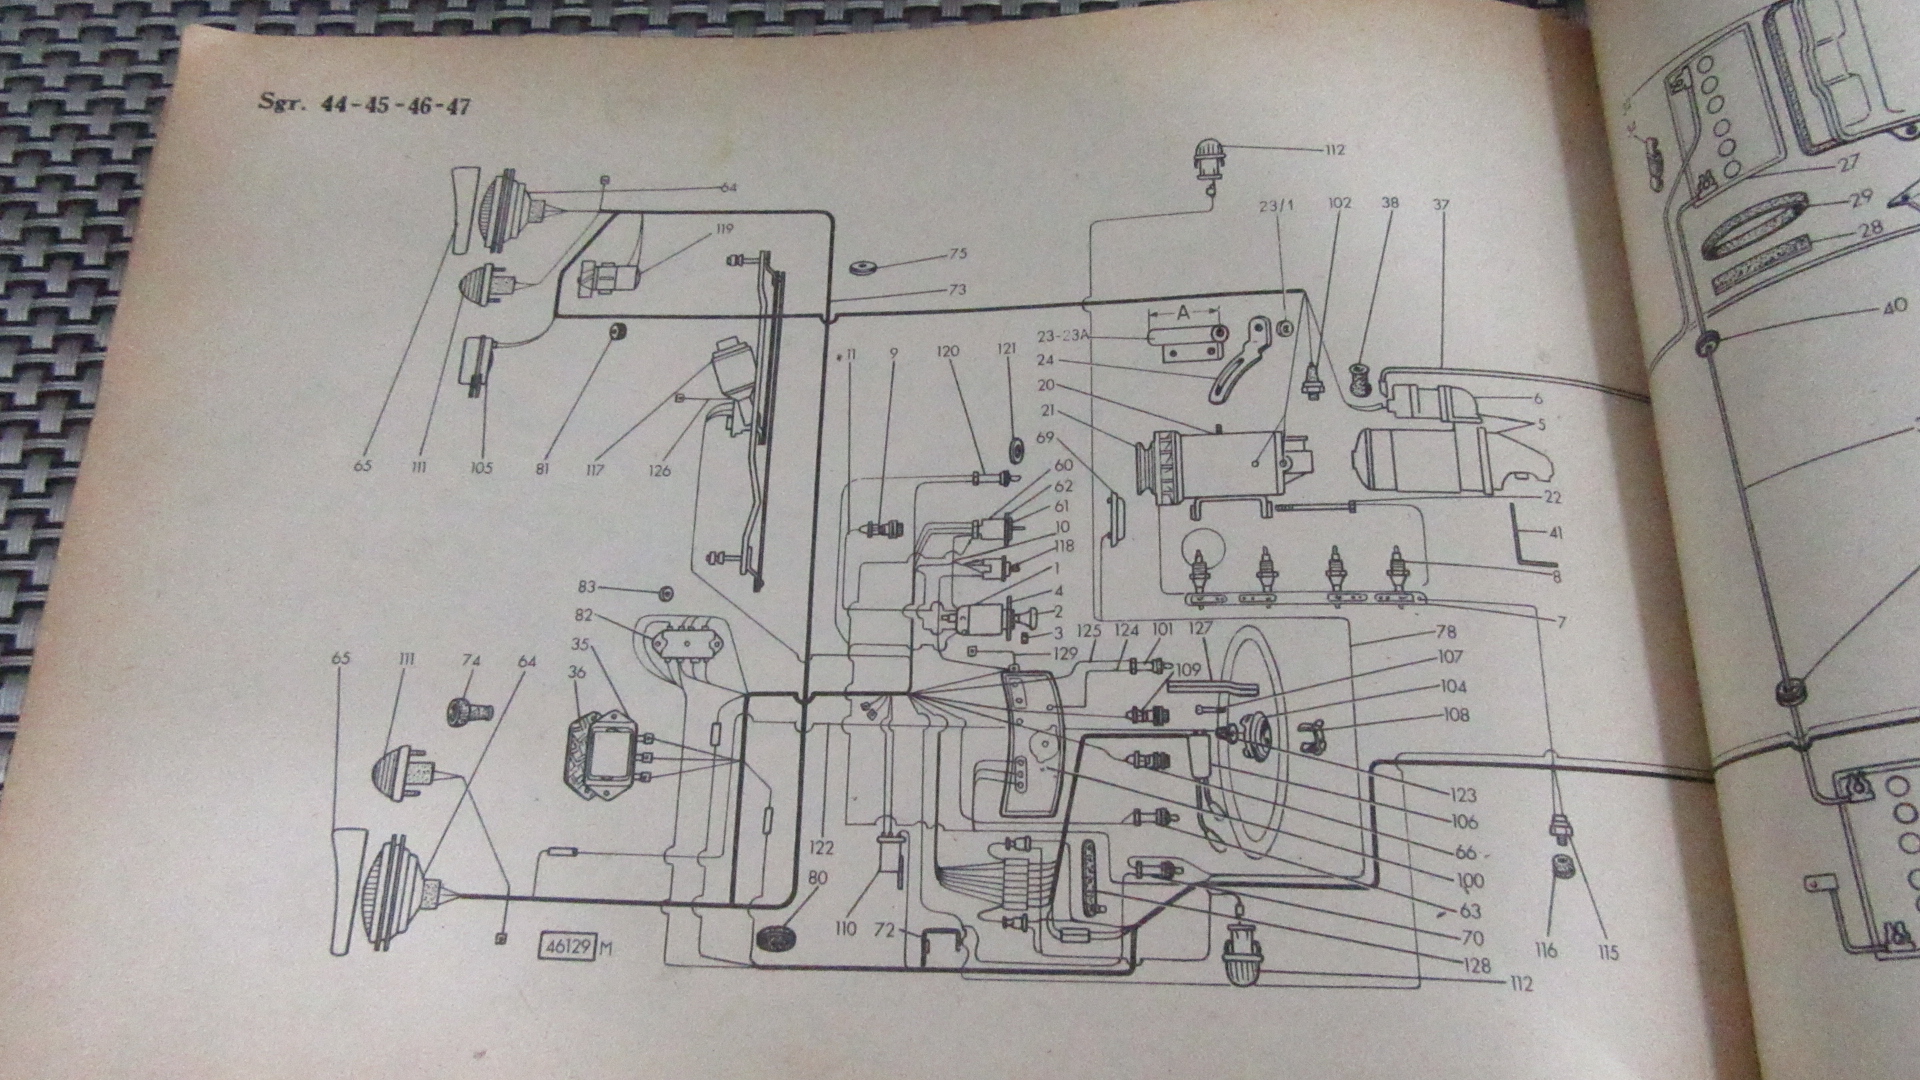 Sgr. 44-45-46-47
112
64
23/1
102
38
37
119
75
73
A
23-23A
24
20
21
69
11
9
120
121
6
5
60
62
61
10
118
1
4
2
3
129
22
41
8
7
65
111
105
81
117
126
83
82
35
36
65
111
74
64
125
124
101
127
109
78
107
104
108
123
106
66
100
63
70
128
112
122
80
110
72
46129 M
116
115
27
29
28
40